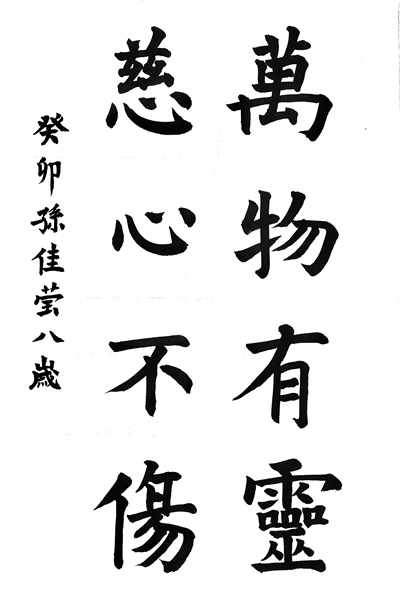 萬物有靈
慈心不傷
癸卯孫佳莹八歲